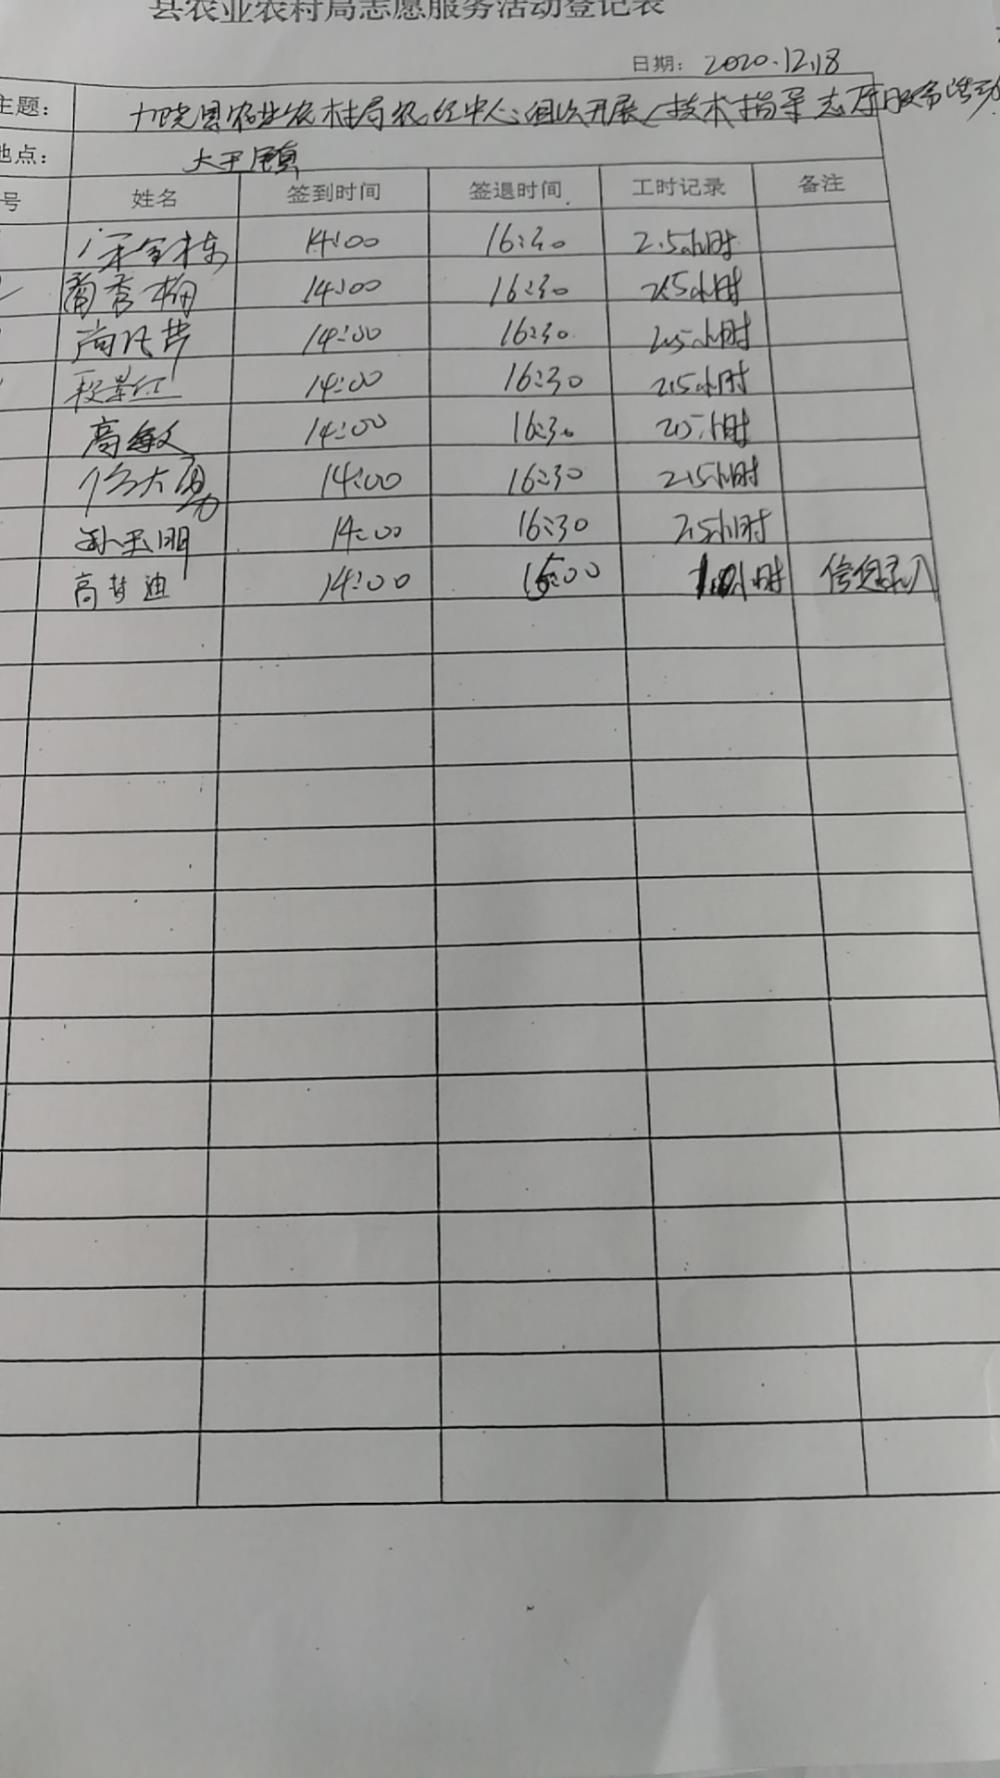 县农业农村局志愿服务活动登记表
日期: 2020.12.18
主题: 县农业农村局农经中心组织开展"技术指导志愿服务活动
地点: 大王镇
号 姓名 签到时间 签退时间 工时记录 备注
14:00 16:30 2.5小时
秀梅 14:00 16:30 2.5小时
14:00 16:30 2.5小时
段景红 14:00 16:30 2.5小时
高敏 14:00 16:30 2.5小时
徐大勇 14:00 16:30 2.5小时
孙玉明 14:00 16:30 2.5小时
高梦迪 14:00 15:00 1.0小时 信息录入